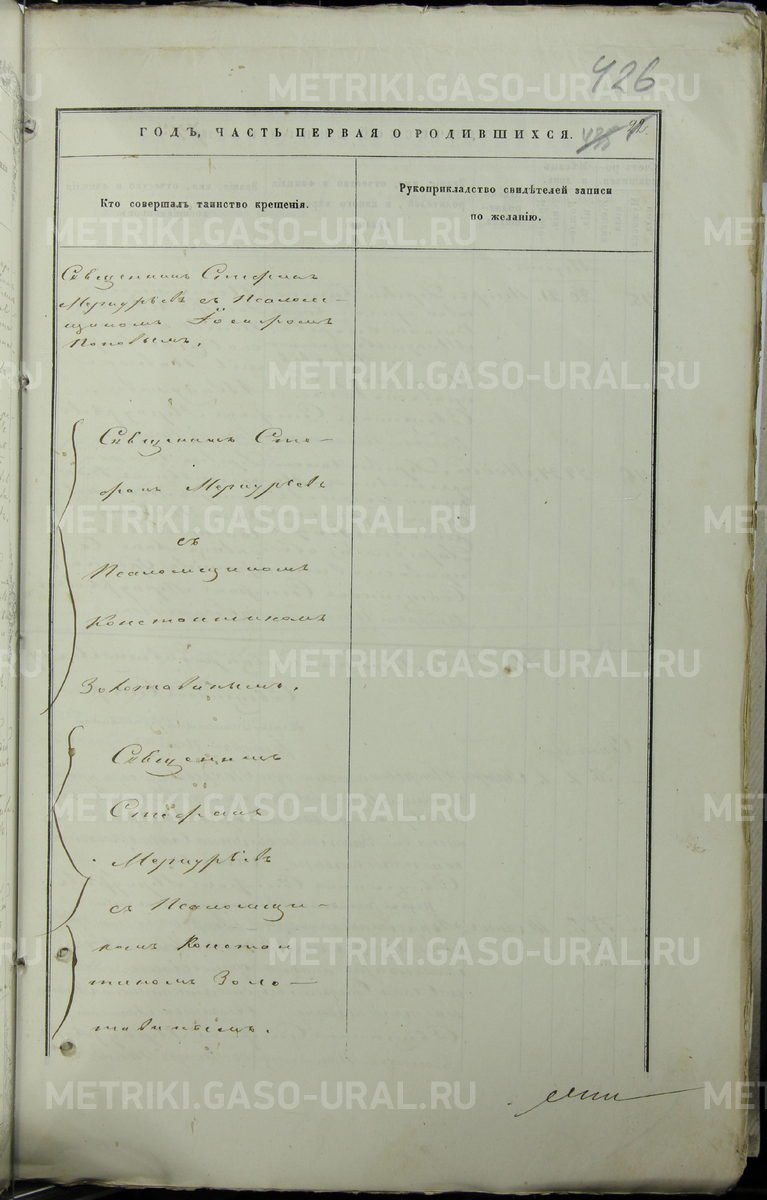 426
ГОДЪ, ЧАСТЬ ПЕРВАЯ О РОДИВШИХСЯ.
Кто совершалъ таинство крещенія.
Рукоприкладство свидѣтелей записи
по желанію.
Священникъ Стефанъ
Меркурьевъ съ Псаломщ-
щикомъ Іосифомъ
Поповымъ.
Священникъ Сте-
фанъ Меркурьевъ
съ
Псаломщикомъ
Константиномъ
Золотавинымъ.
Священникъ
Стефанъ
Меркурьевъ
съ Псаломщи-
комъ Констан
тиномъ Золо-
тавинымъ.
METRIKI.GASO-URAL.RU